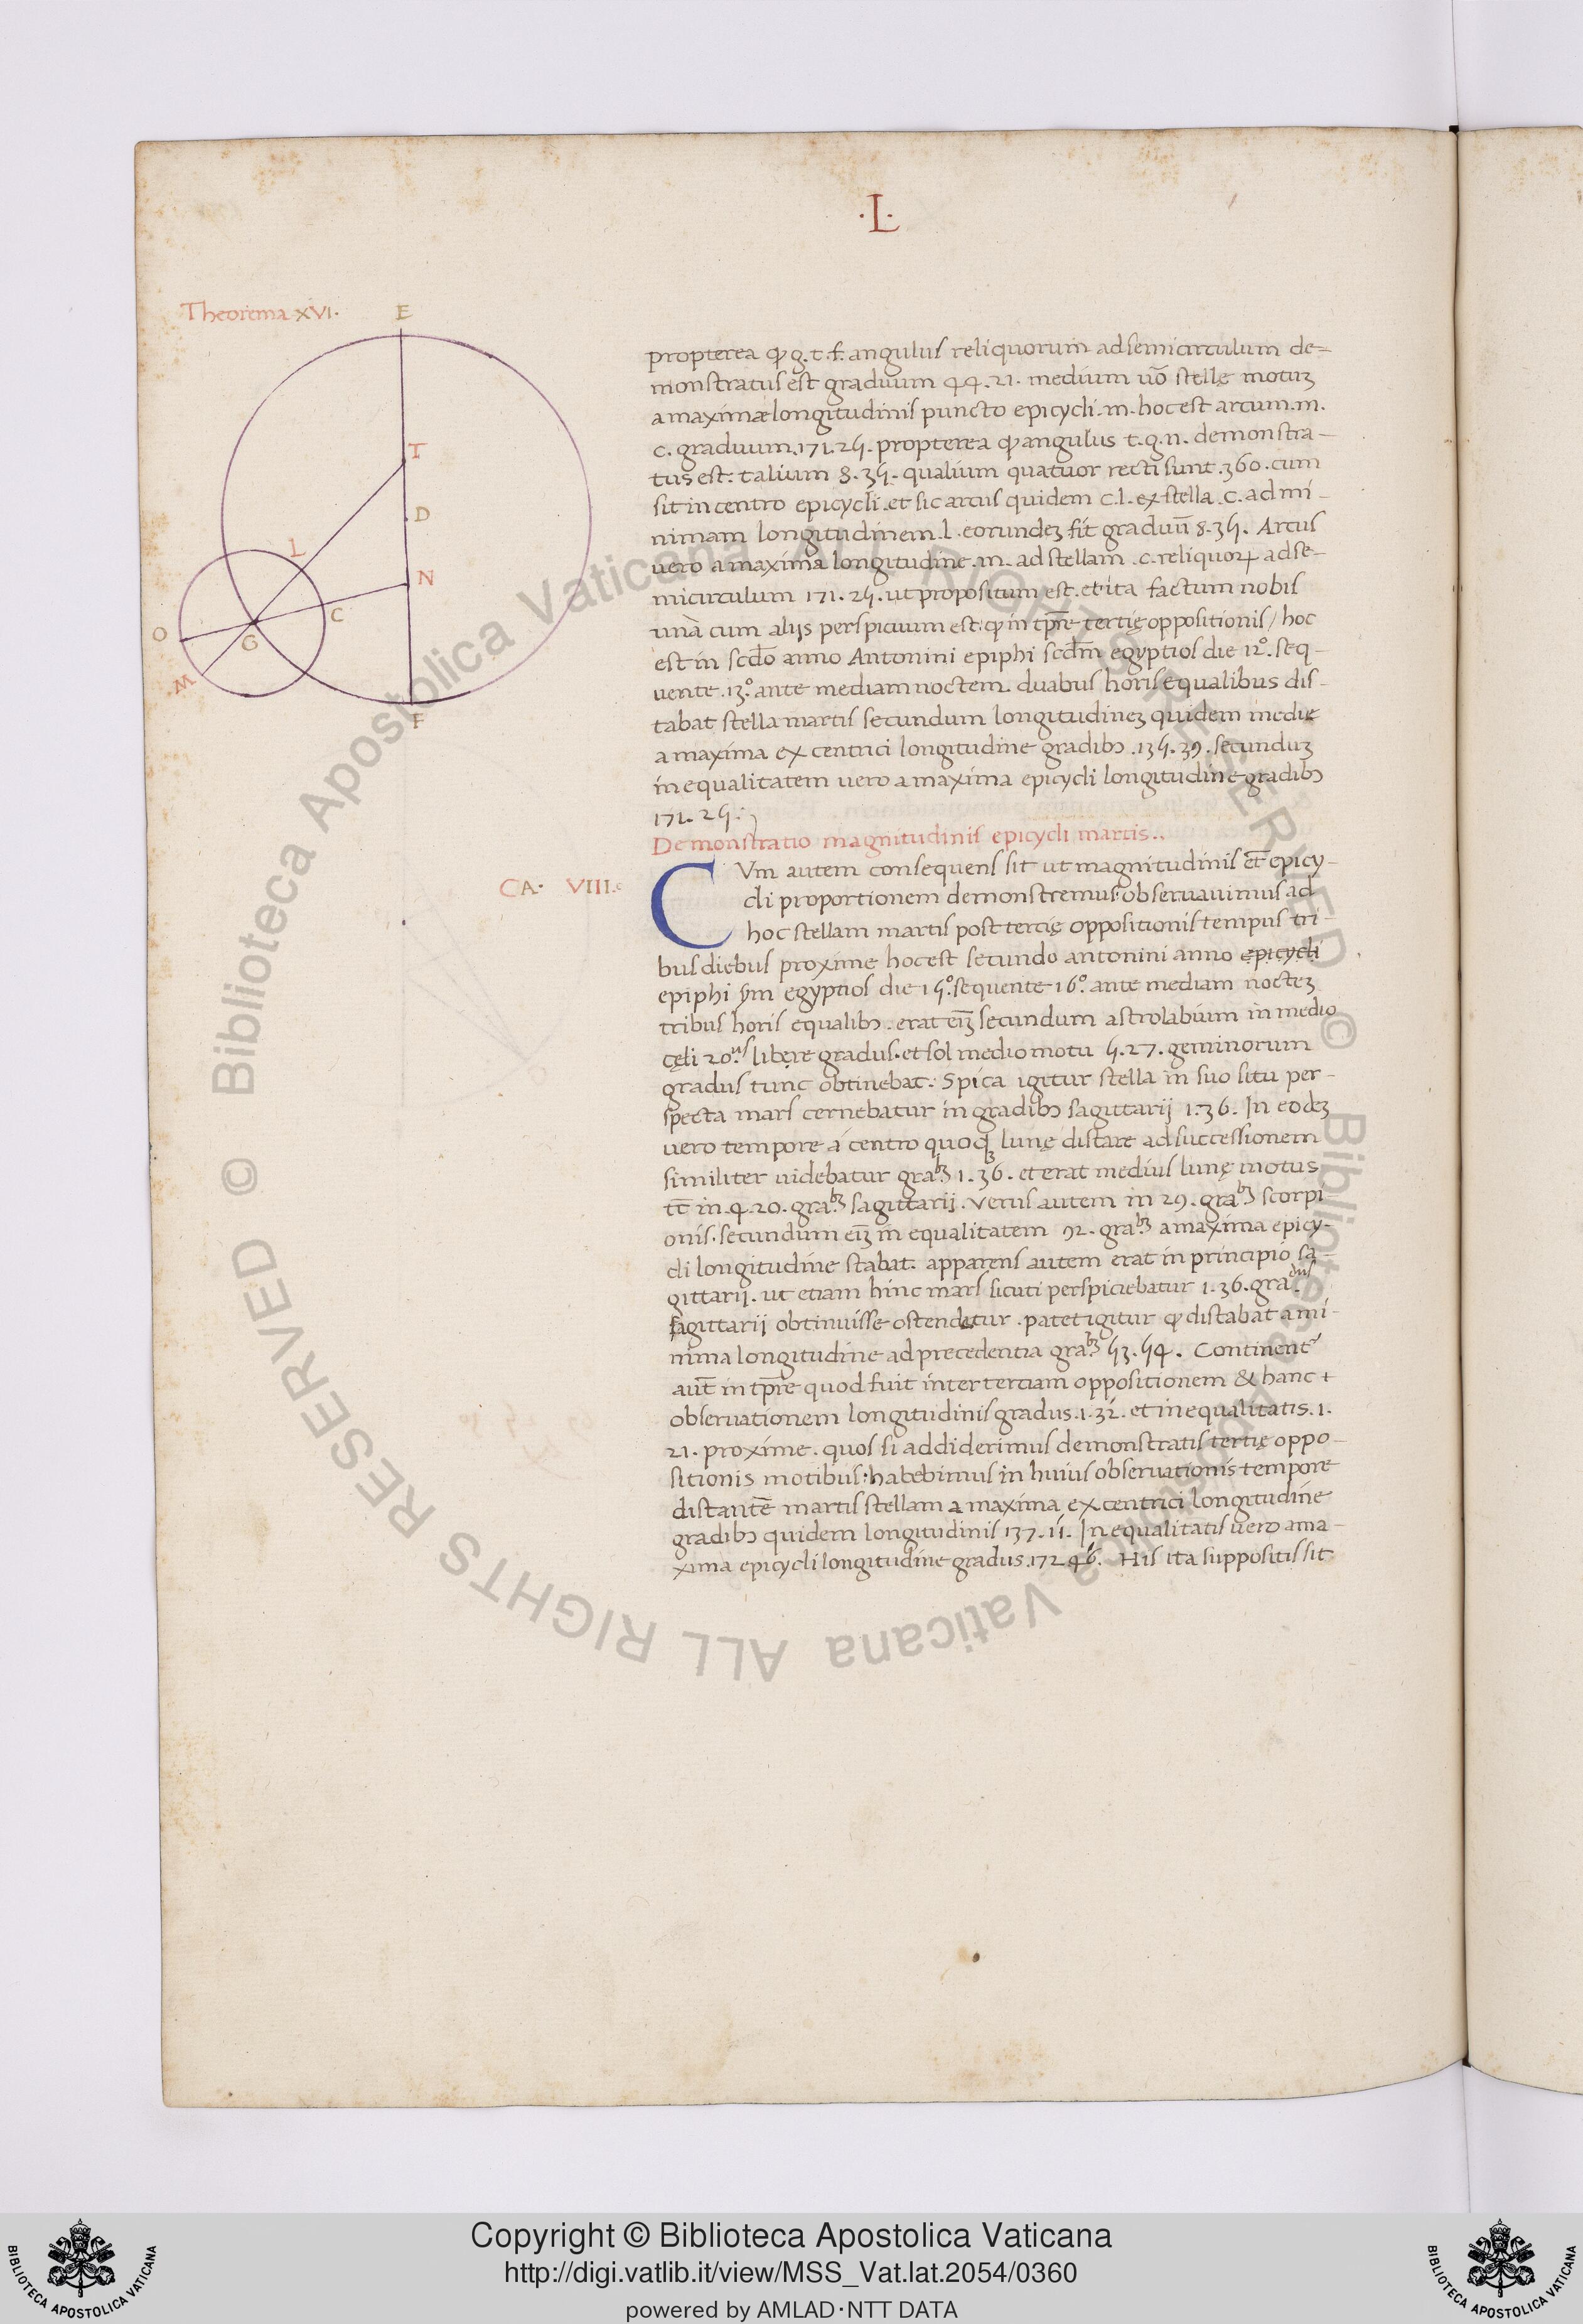 ·L·
Theorema XVI·
E
T
D
L
N
C
O
G
M
F
propterea ꝙ g.t.f. angulus reliquorum ad semicirculum de=
monstratus est graduum 44.21. medium uō stellę motuʒ
a maximæ longitudinis puncto epicycli .m. hoc est arcum .m.
c. graduum .171.25. propterea ꝙ angulus t.g.n. demonstra-
tus est. talium 8.35. qualium quatuor recti sunt .360. cum
sit in centro epicycli. et sic arcus quidem c.l. ex stella .c. ad mi-
nimam longitudinem .l. eorundeʒ fit graduū 8.35. Arcus
uero a maxima longitudine .m. ad stellam .c. reliquoꝝ ad se-
micirculum 171.25. ut propositum est. et ita factum nobis
unà cum alijs perspicuum est: ꝙ in tp̄re tertię oppositionis / hoc
est in scd̄o anno Antonini epiphi scd̄m egyptios die 12°. seq-
uente .13°. ante mediam noctem duabus horis equalibus dis-
tabat stella martis secundum longitudineʒ quidem medie
a maxima excentrici longitudine gradibꝫ .135.39. secunduʒ
inequalitatem uero a maxima epicycli longitudine gradibꝫ
171.25.
Demonstratio magnitudinis epicycli martis..
CA· VIII.
CVm autem consequens sit ut magnitudinis et̄ epicy-
cli proportionem demonstremus: obseruauimus ad
hoc stellam martis post tertię oppositionis tempus tri-
bus diebus proxime hoc est secundo antonini anno epicycli
epiphi s̄m egyptios die 15°. sequente 16°. ante mediam nocteʒ
tribus horis equalibꝫ. erat eīʒ secundum astrolabium in medio
cęli 20.us libere gradus. et sol medio motu 5.27. geminorum
gradus tunc obtinebat. Spica igitur stella in suo situ per-
specta mars cernebatur in gradibꝫ sagittarij 1.36. In eodeʒ
uero tempore á centro quoqꝫ lunę distare ad successionem
similiter uidebatur gra.bꝫ 1.36. et erat medius lunę motus
tc̄ in .4.20. gra.bꝫ sagittarij. Verus autem in 29. gra.bꝫ scorpi
onis. secundum eīʒ inequalitatem 92. gra.bꝫ a maxima epicy-
cli longitudine stabat. apparens autem erat in principio sa-
gittarij. ut etiam hinc mars sicuti perspiciebatur 1.36. gra.dus
sagittarij obtinuisse ostendatur. patet igitur ꝙ distabat a mi-
nima longitudine ad precedentia gra.bꝫ 53.54. Continent'
aut̄ in tp̄re quod fuit inter tertiam oppositionem & hanc +
obseruationem longitudinis gradus .1.32. et inequalitatis .1.
21. proxime. quos si addiderimus demonstratis tertię oppo-
sitionis motibus: habebimus in huius obseruationis tempore
distantē martis stellam a maxima excentrici longitudine
gradibꝫ quidem longitudinis 137.11. Inequalitatis uero a ma-
xima epicycli longitudine gradus .172.46. His ita suppositis sit
Copyright © Biblioteca Apostolica Vaticana
http://digi.vatlib.it/view/MSS_Vat.lat.2054/0360
powered by AMLAD·NTT DATA
BIBLIOTECA APOSTOLICA VATICANA
BIBLIOTECA APOSTOLICA VATICANA
© Biblioteca Apostolica Vaticana ALL RIGHTS RESERVED © Biblioteca Apostolica Vaticana ALL RIGHTS RESERVED